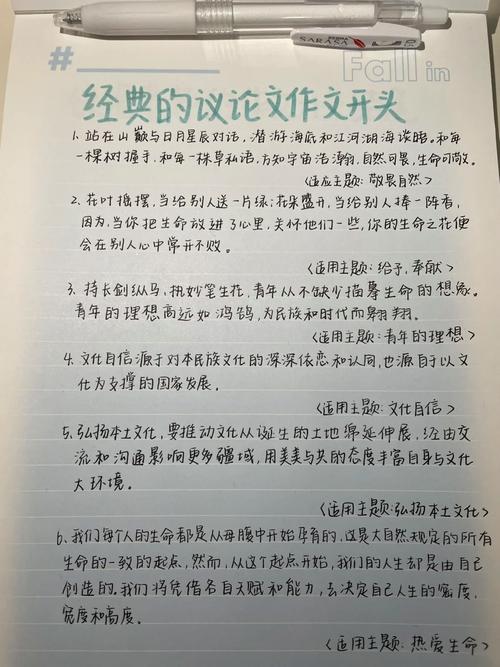 SARASA
#
Fall in
经典的议论文作文开头
1. 站在山巅与日月星辰对话,潜游海底和江河湖海谈晤。和每
一棵树握手,和每一株草私语,方知宇宙浩瀚,自然可畏,生命可敬。
<适应主题:敬畏自然>
2. 花叶摇摆,当给别人送一片绿;花朵盛开,当给别人捧一阵香,
因为,当你把生命放进了心里,关怀他们一些,你的生命之花便
会在别人心中常开不败。
<适用主题:给予,奉献>
3. 持长剑纵马,执妙笔生花,青年从不缺少描摹生命的想象。
青年的理想高远如鸿鹄,为民族和时代而翱翔。
<适用主题:青年的理想>
4. 文化自信源于对本民族文化的深深依恋和认同,也源自于以文
化为支撑的国家发展。
<适用主题:文化自信>
5. 弘扬本土文化,要推动文化从诞生的土地绵延伸展,经由交
流和沟通影响更多疆域,用美美与共的态度丰富自身与文化
大环境。
<适用主题:弘扬本土文化>
6. 我们每个人的生命都是从母腹中开始孕育的,这是大自然规定的所有
生命的一致的起点,然而,从这个起点开始,我们的人生都是由自己
创造的。我们将凭借各自天赋和能力,去决定自己人生的密度,
宽度和高度。
<适用主题:热爱生命>